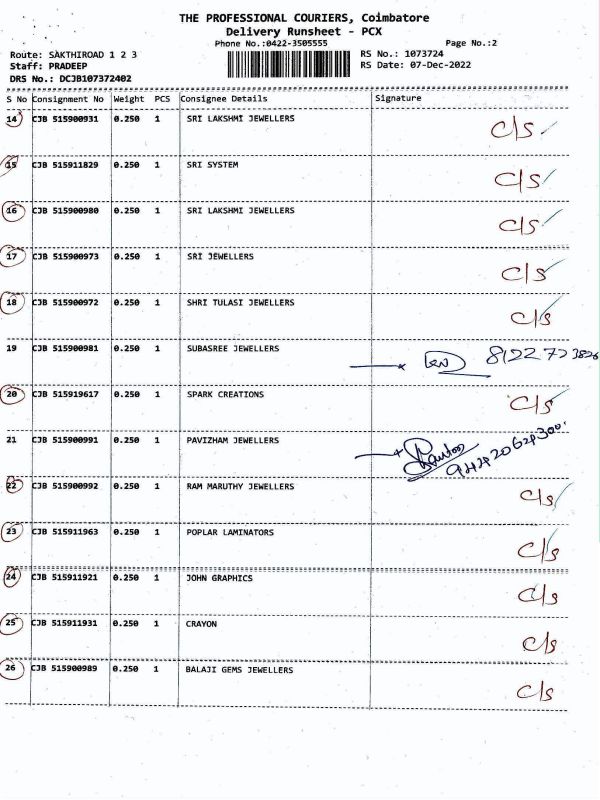 THE PROFESSIONAL COURIERS, Coimbatore
Delivery Runsheet - PCX
Phone No.:0422-3505555 Page No.:2
Route: SAKTHIROAD 1 2 3 RS No.: 1073724
Staff: PRADEEP RS Date: 07-Dec-2022
DRS No.: DCJB107372402
S No Consignment No Weight PCS Consignee Details Signature
14 CJB 515900931 0.250 1 SRI LAKSHMI JEWELLERS C/S
15 CJB 515911829 0.250 1 SRI SYSTEM C/S
16 CJB 515900980 0.250 1 SRI LAKSHMI JEWELLERS C/S
17 CJB 515900973 0.250 1 SRI JEWELLERS C/S
18 CJB 515900972 0.250 1 SHRI TULASI JEWELLERS C/S
19 CJB 515900981 0.250 1 SUBASREE JEWELLERS 8122723826
20 CJB 515919617 0.250 1 SPARK CREATIONS C/S
21 CJB 515900991 0.250 1 PAVIZHAM JEWELLERS
22 CJB 515900992 0.250 1 RAM MARUTHY JEWELLERS C/S
23 CJB 515911963 0.250 1 POPLAR LAMINATORS C/S
24 CJB 515911921 0.250 1 JOHN GRAPHICS C/S
25 CJB 515911931 0.250 1 CRAYON C/S
26 CJB 515900989 0.250 1 BALAJI GEMS JEWELLERS C/S